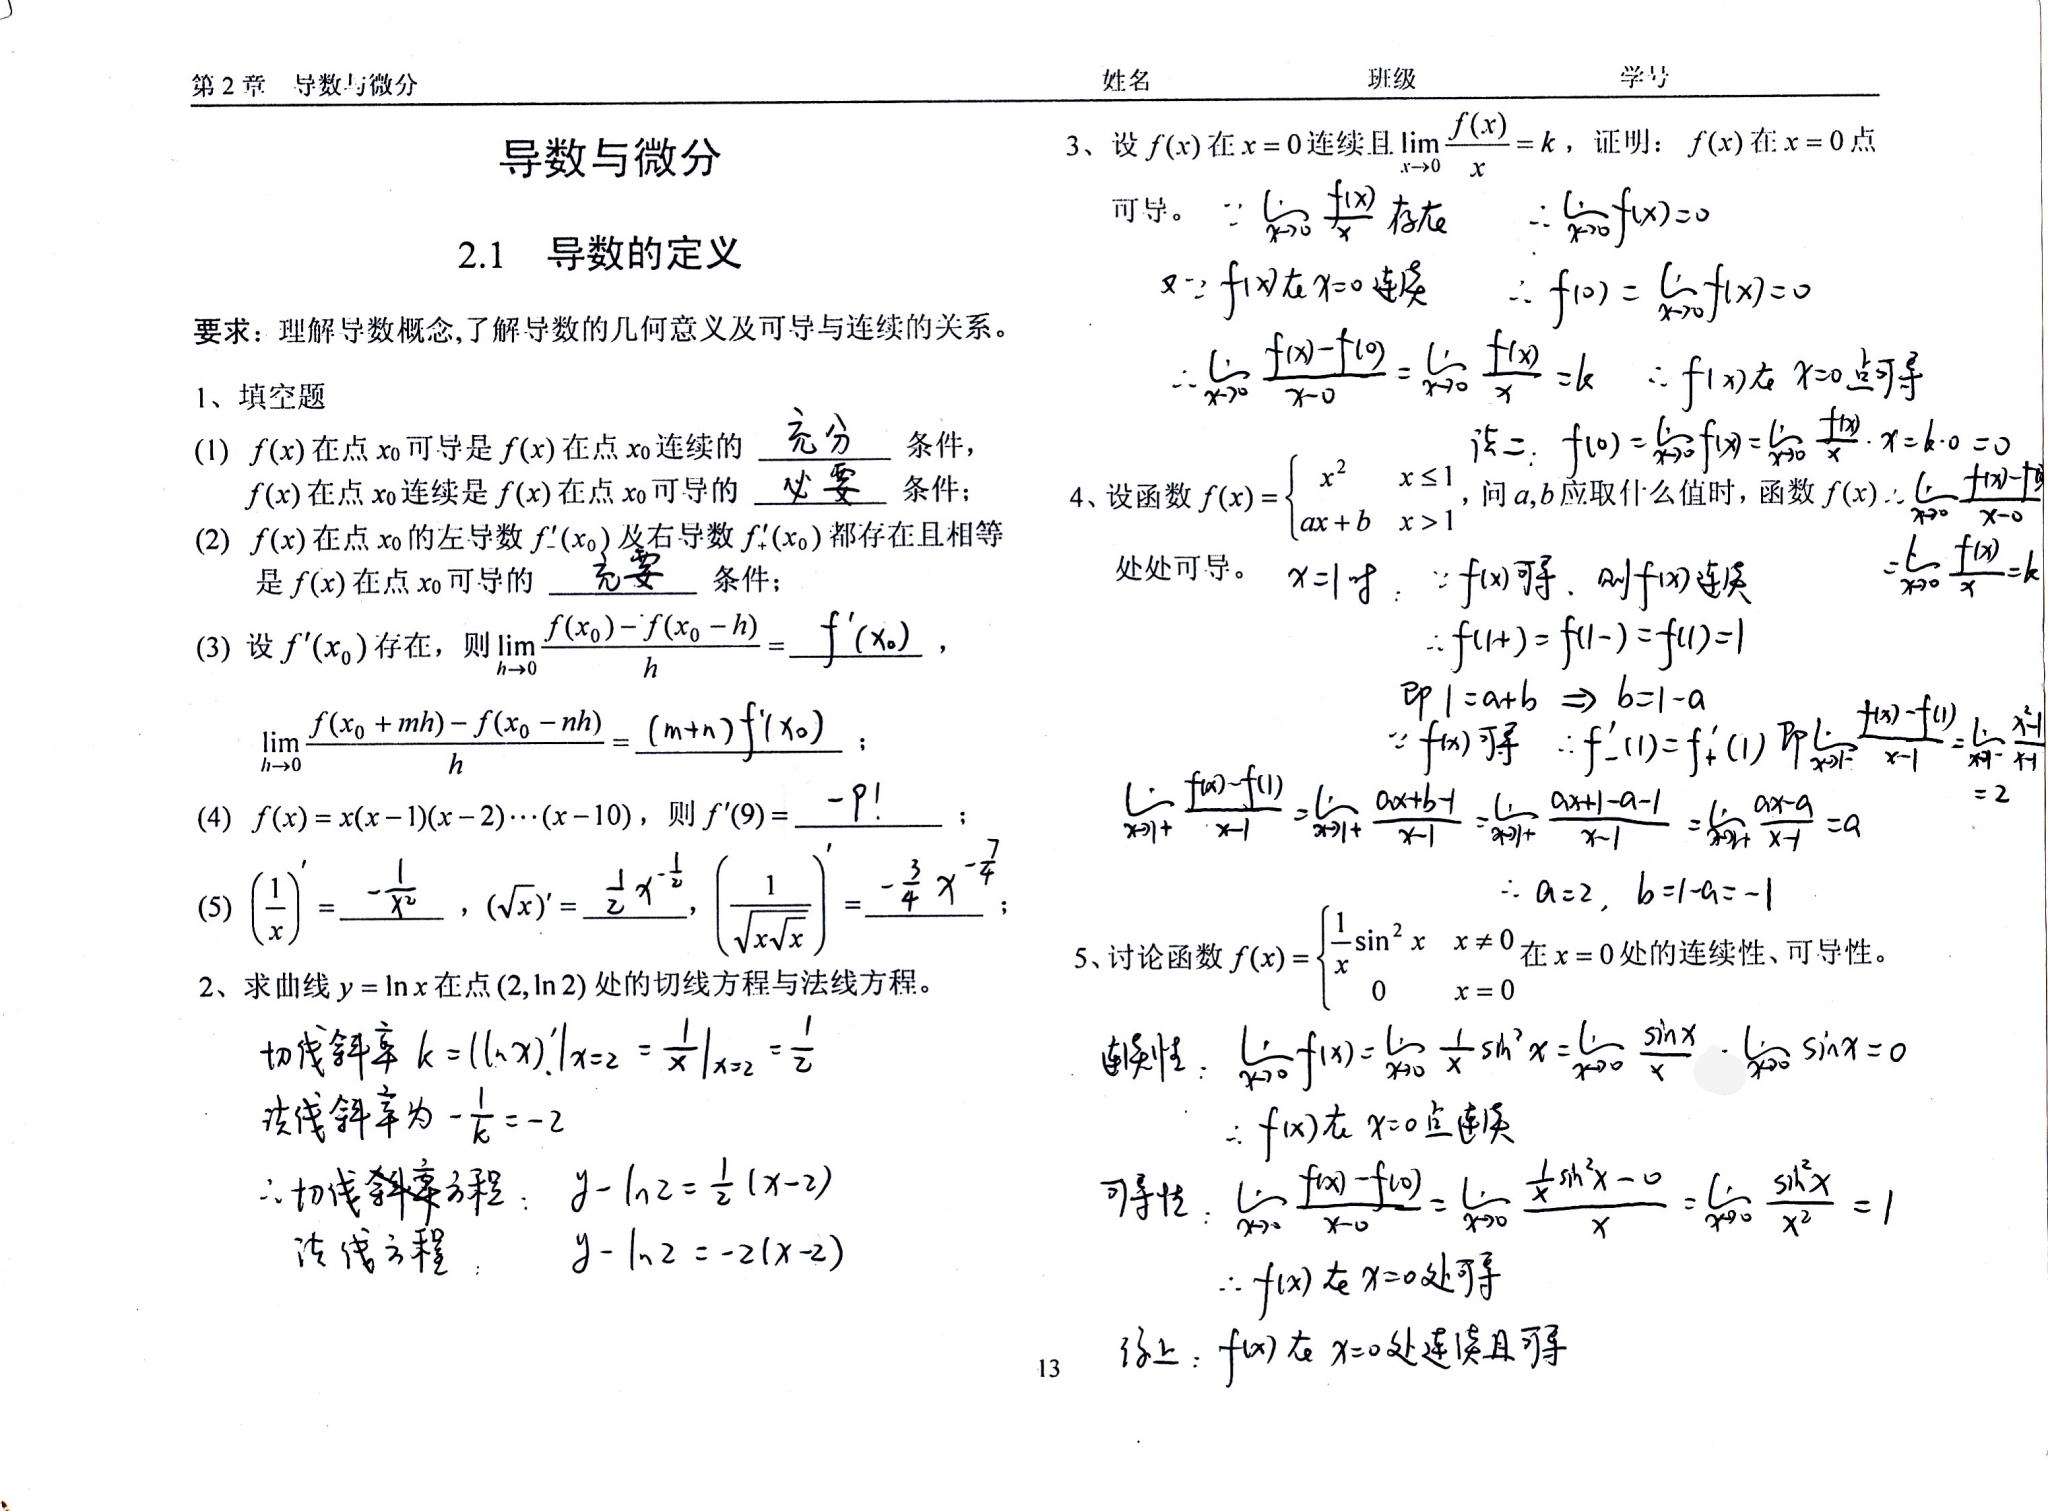 第 2 章 导数与微分 姓名 班级 学号
导数与微分
2.1 导数的定义
要求：理解导数概念,了解导数的几何意义及可导与连续的关系。
1、填空题
(1) f(x) 在点 x₀ 可导是 f(x) 在点 x₀ 连续的 充分 条件，
f(x) 在点 x₀ 连续是 f(x) 在点 x₀ 可导的 必要 条件；
(2) f(x) 在点 x₀ 的左导数 f₋′(x₀) 及右导数 f₊′(x₀) 都存在且相等
是 f(x) 在点 x₀ 可导的 充要 条件；
(3) 设 f′(x₀) 存在，则 lim_{h→0} (f(x₀)−f(x₀−h))/h = f′(x₀)，
lim_{h→0} (f(x₀+mh)−f(x₀−nh))/h = (m+n)f′(x₀)；
(4) f(x) = x(x−1)(x−2)⋯(x−10)，则 f′(9) = −9!；
(5) (1/x)′ = −1/x²，(√x)′ = ½x^{−1/2}，(1/√(x√x))′ = −¾ x^{−7/4}；
2、求曲线 y = ln x 在点 (2, ln 2) 处的切线方程与法线方程。
切线斜率 k = (ln x)′|x=2 = 1/x|x=2 = 1/2
法线斜率为 −1/k = −2
∴切线方程： y−ln2 = ½(x−2)
法线方程： y−ln2 = −2(x−2)
3、设 f(x) 在 x = 0 连续且 lim_{x→0} f(x)/x = k，证明： f(x) 在 x = 0 点
可导。 ∵ lim_{x→0} f(x)/x 存在 ∴ lim_{x→0} f(x)=0
又∵ f(x)在x=0连续 ∴ f(0) = lim_{x→0} f(x)=0
∴ lim_{x→0} (f(x)−f(0))/(x−0) = lim_{x→0} f(x)/x = k ∴ f(x)在 x=0点可导
法二： f(0) = lim_{x→0} f(x) = lim_{x→0} f(x)/x · x = k·0 = 0
∴ lim_{x→0} (f(x)−f(0))/(x−0)
= lim_{x→0} f(x)/x = k
4、设函数 f(x) = { x² x ≤ 1
ax + b x > 1 ，问 a,b 应取什么值时，函数 f(x)
处处可导。 x=1时： ∵ f(x)可导、则f(x)连续
∴ f(1+) = f(1−) = f(1) = 1
即 1=a+b ⇒ b=1−a
∵ f(x)可导 ∴ f₋′(1)=f₊′(1) 即 lim_{x→1−} (f(x)−f(1))/(x−1) = lim_{x→1−} (x²−1)/(x−1)
= 2
lim_{x→1+} (f(x)−f(1))/(x−1) = lim_{x→1+} (ax+b−1)/(x−1) = lim_{x→1+} (ax+1−a−1)/(x−1) = lim_{x→1+} (ax−a)/(x−1) = a
∴ a=2, b=1−a=−1
5、讨论函数 f(x) = { (1/x) sin² x x ≠ 0
0 x = 0 在 x = 0 处的连续性、可导性。
连续性： lim_{x→0} f(x) = lim_{x→0} (1/x) sin²x = lim_{x→0} sinx/x · lim_{x→0} sinx = 0
∴ f(x)在 x=0点连续
可导性： lim_{x→0} (f(x)−f(0))/(x−0) = lim_{x→0} ((1/x) sin²x − 0)/x = lim_{x→0} sin²x/x² = 1
∴ f(x)在 x=0处可导
综上： f(x)在 x=0处连续且可导
13